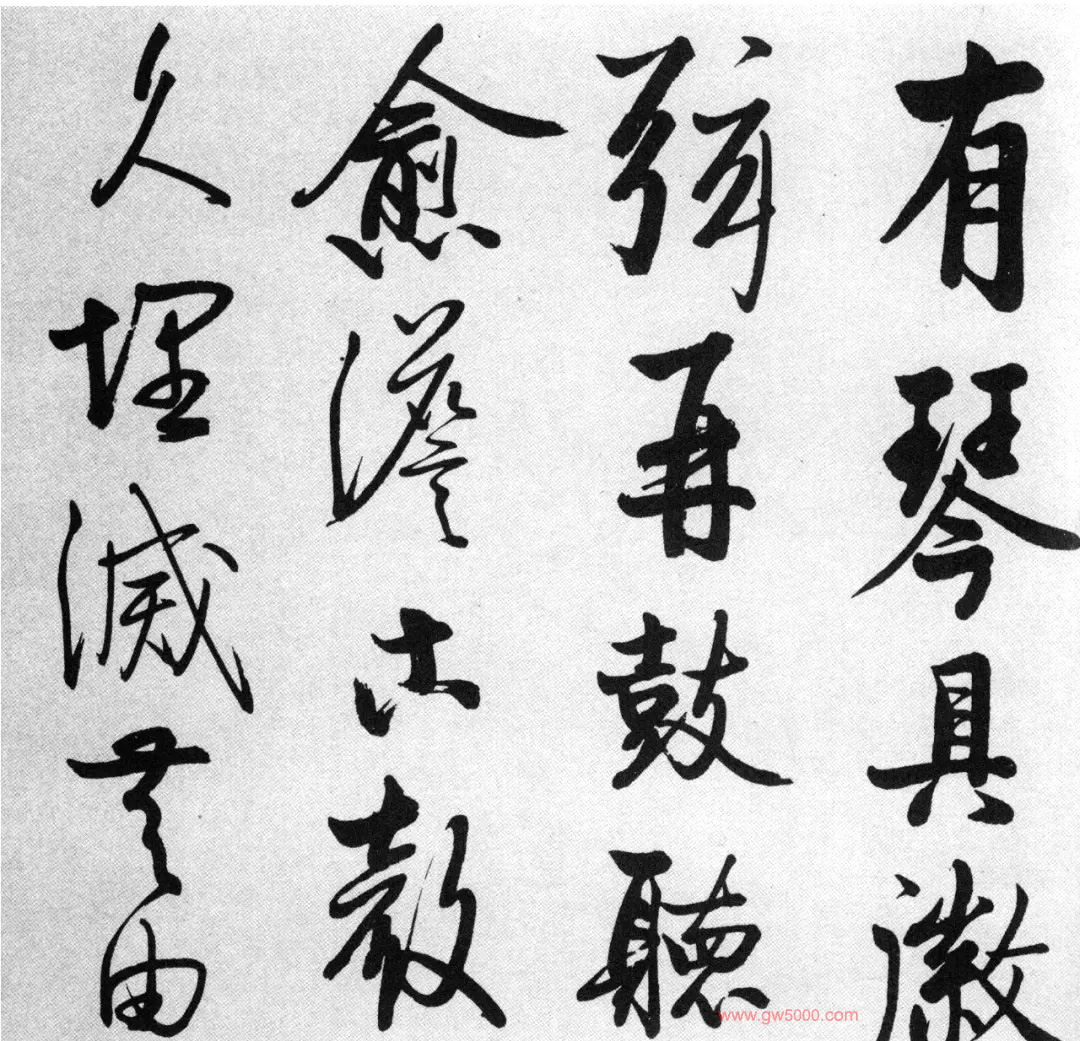 有琴具徽
弦再鼓聽
愈澹古聲
久埋滅無由
www.gw5000.com